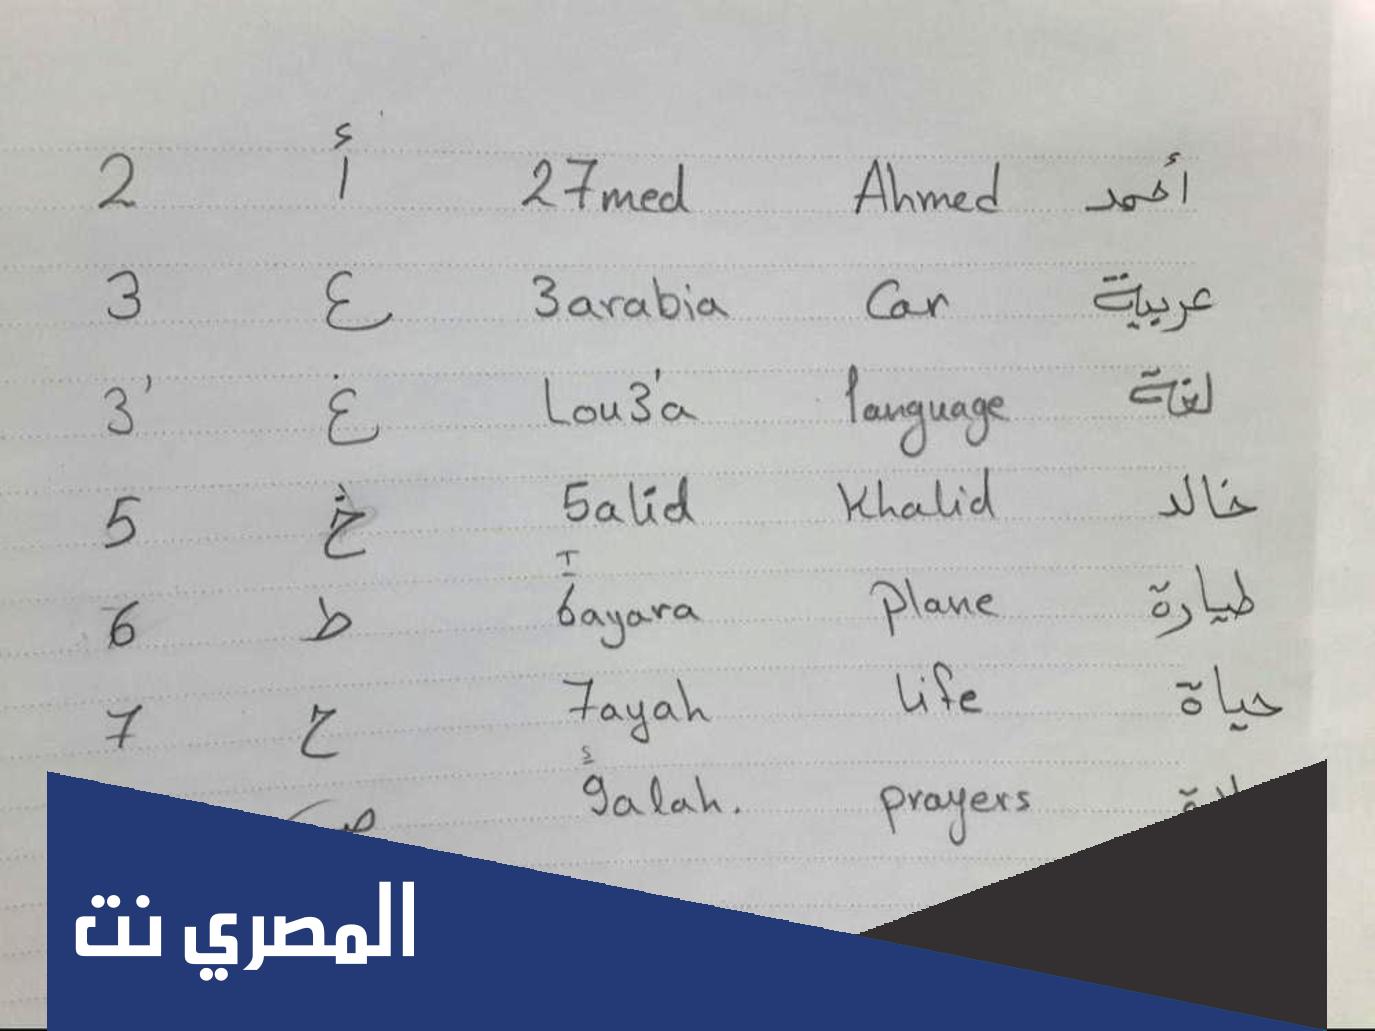 2 أ 27med Ahmed أحمد
3 ع 3arabia Car عربية
3' غ Lou3'a language لغة
5 خ 5alid Khalid خالد
T
6 ط 6ayara plane طيارة
7 ح 7ayah life حياة
s
ص 9alah. prayers
المصري نت